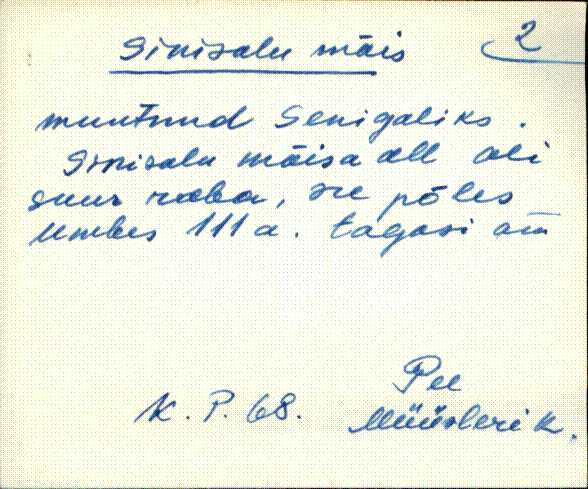 Sinisalu mõis 2
muutnud Senigaliks.
Sinisalu mõisa all oli
suur raba, see põles
umbes 111 a. tagasi ära
K. P. 68. Pee
Müüsleri k.